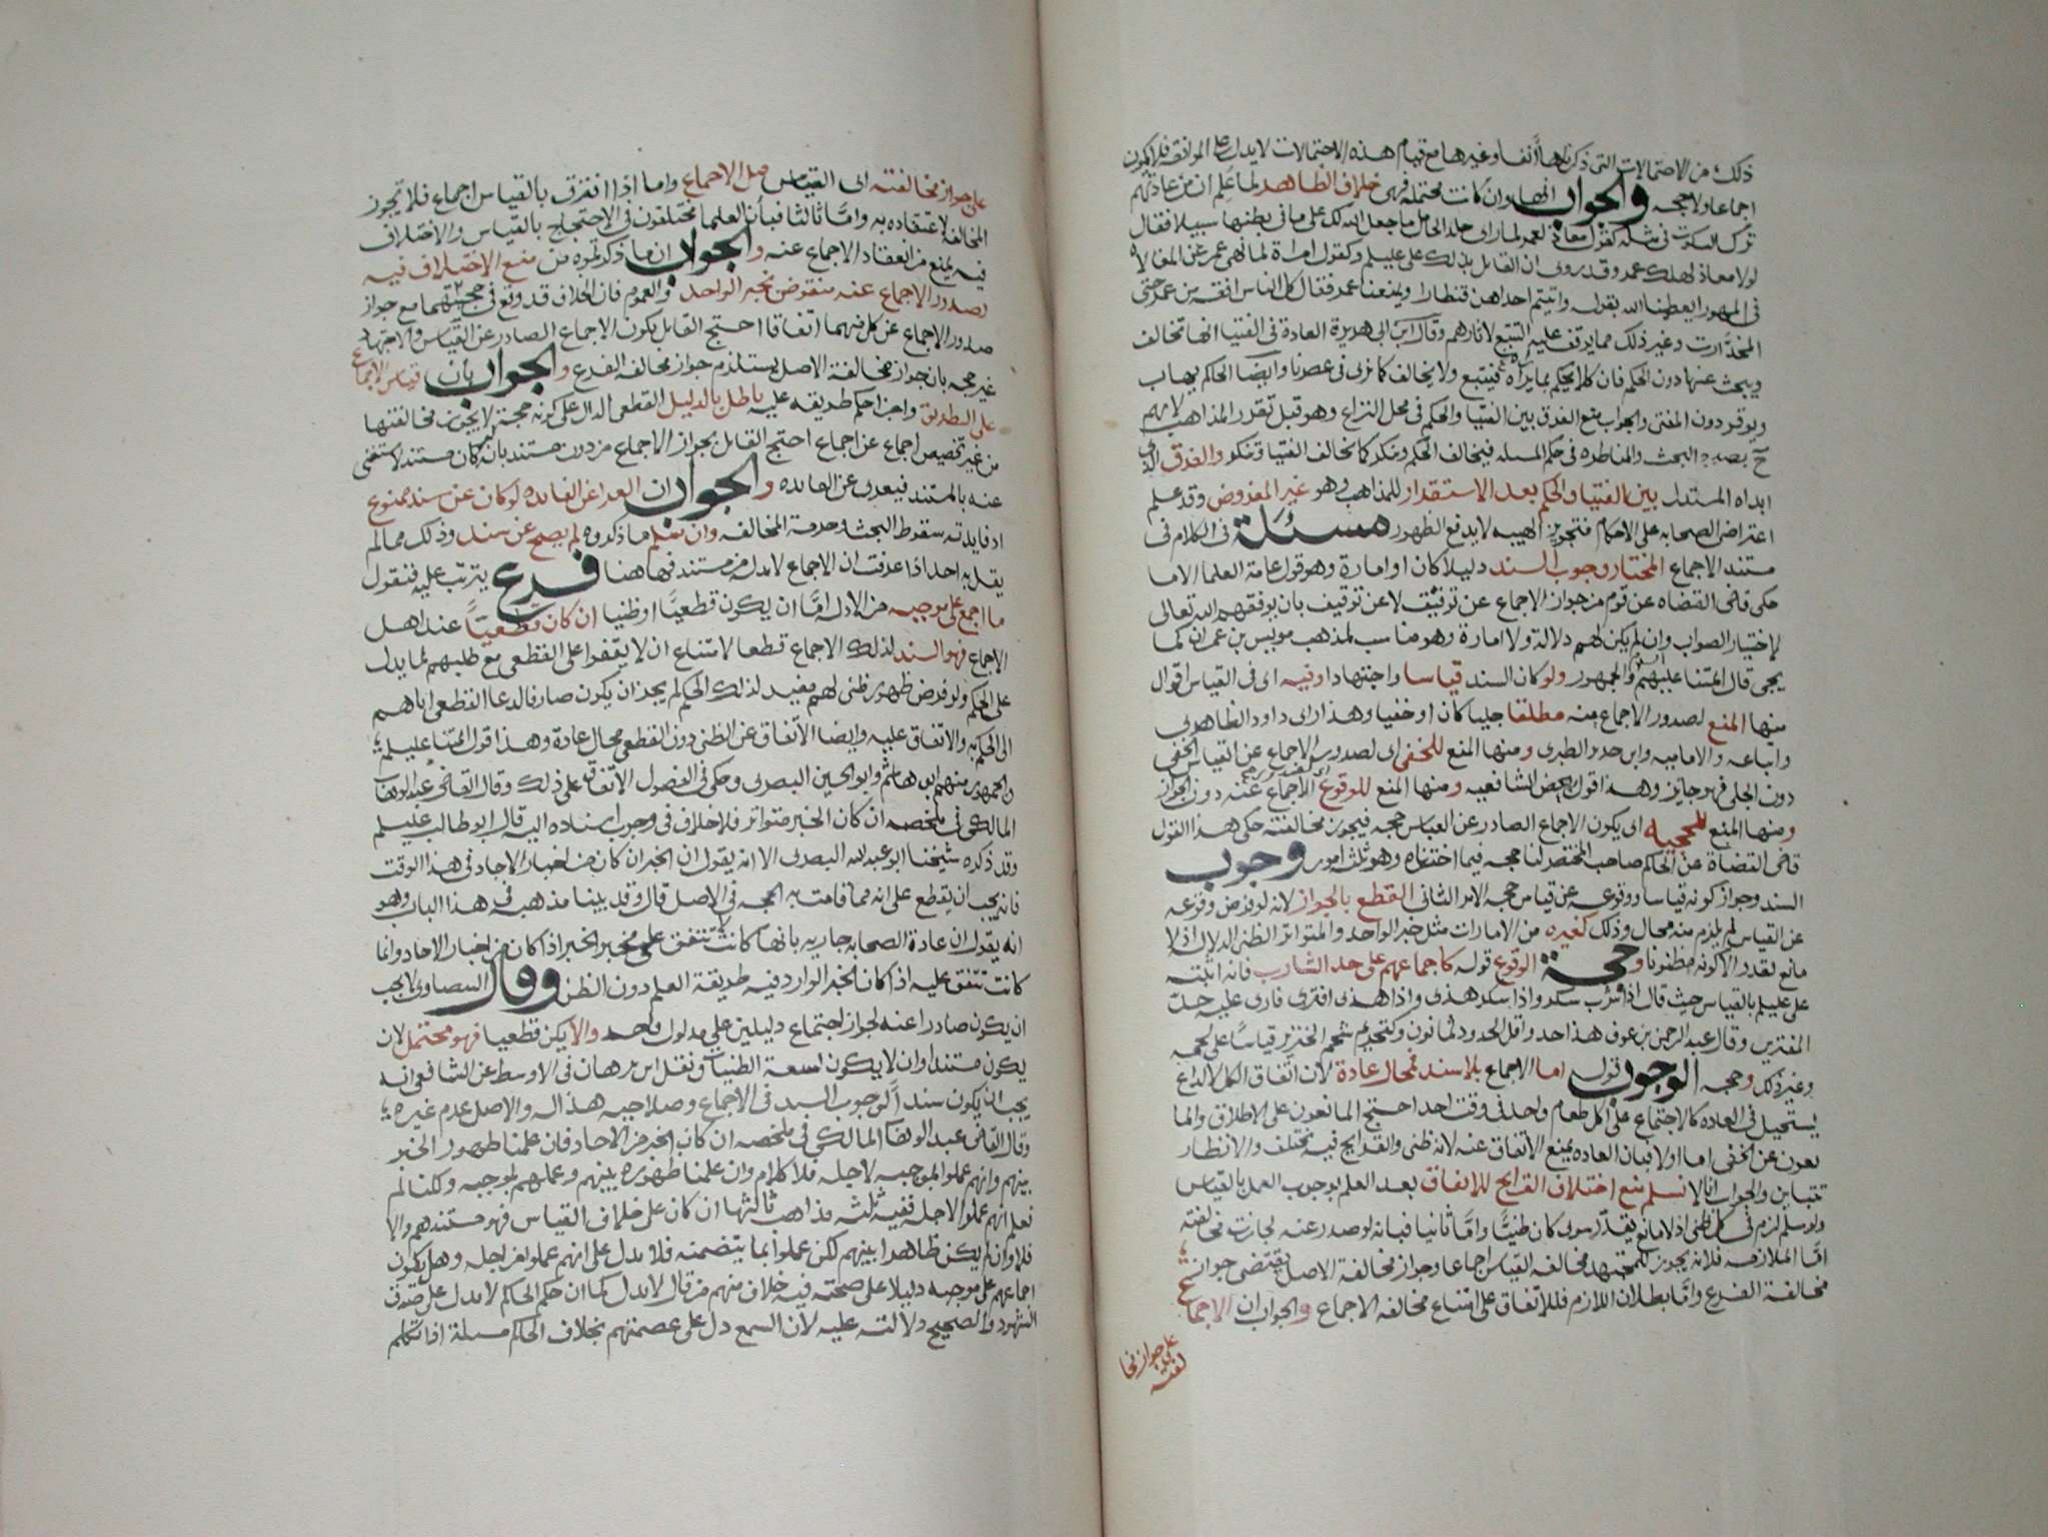 ذلك من الاحتمالات التى ذكرناها آنفا وغيرها مع قيام هذه الاحتمالات لا يدل على الموافقه فلا يكون
اجماعا ولا حجه والجواب انها وان كانت محتمله فهى خلاف الظاهر لما علم ان من عادتهم
ترك السكوت فى مثله كقول معاذ لعمر لما راى جلد الحامل ما جعل الله لك على ما فى بطنها سبيلا فقال
لولا معاذ لهلك عمر وقد روى ان القايل بذلك على عليلم وكقول امراة لما نهى عمر عن المغالاه
فى المهور ايعطينا الله بقوله واتيتم احداهن قنطارا ويمنعنا عمر فقال كل الناس افقه من عمر حتى
المخدّرات وغير ذلك مما يوقف عليه التتبع لاثارهم وقال ابن ابى هريرة العادة فى الفتيا انها تخالف
ويبحث عنها دون الحكم فان كلا يحكم بما يراه فيتبع ولا يخالف كما نرى فى عصرنا وايضا الحاكم يهاب
ويوقر دون المفتى والجواب منع الفرق بين الفتيا والحكم فى محل النزاع وهو قبل تقرر المذاهب لانهم
ح بصدد البحث والمناظره فى حكم المسله فيخالف الحكم وينكر كما تخالف الفتيا وتنكر والفرق الذى
ابداه المستدل بين الفتيا والحكم بعد الاستقرار للمذاهب وهو غير المفروض وقد علم
اعتراض الصحابه على الاحكام فتجويز الهيبه لا يدفع الظهور مسئلة فى الكلام فى
مستند الاجماع المختار وجوب السند دليلا كان او امارة وهو قول عامة العلما الا ما
حكى قاضى القضاه عن قوم من جواز الاجماع عن توفيق لا عن توقيف بان يوفقهم الله تعالى
لاختيار الصواب وان لم يكن لهم دلالة ولا امارة وهو مناسب لمذهب مويس بن عمران كما
يجى قال ائمتنا عليهم والجمهور ولو كان السند قياسا واجتهادا وفيه اى فى القياس اقوال
منها المنع لصدور الاجماع منه مطلقا جليا كان او خفيا وهذا راى داود الظاهرى
واتباعه والاماميه وابن جرير الطبرى ومنها المنع للخفى اى لصدور الاجماع عن القياس الخفى
دون الجلى فهو جايز وهذا قول بعض الشافعيه ومنها المنع للوقوع اى الاجماع عنه دون الجواز
ومنها المنع للحجيه اى يكون الاجماع الصادر عن القياس حجه فيجوز مخالفته حكى هذا القول
قاضى القضاة عن الحاكم صاحب المختصر لنا حجه فيما اخترناه وهو ثلثه امور وجوب
السند وجواز كونه قياسا ووقوعه عن قياس حجه الامر الثانى القطع بالجواز لانه لو فرض وقوعه
عن القياس لم يلزم منه محال وذلك كغيره من الامارات مثل خبر الواحد والمتواتر الظنى الدلاله اذ لا
مانع يقدر الا كونه مظنونا وحجة الوقوع قوله كاجماعهم على حد الشارب فانه اثبته
على عليلم بالقياس حيث قال اذا شرب سكر واذا سكر هذى واذا هذى افترى فارى عليه حدّ
المفترين وقال عبد الرحمن بن عوف هذا حد واقل الحدود ثمانون وكتحريم شحم الخنزير قياسا على لحمه
وغير ذلك وحجه الوجوب قوله اما الاجماع بلا سند فمحال عادة لان اتفاق الكل لا لداع
يستحيل فى العاده كالاجتماع على اكل طعام واحد فى وقت احد احتج المانعون على الاطلاق والما
نعون عن الخفى اما اولا فبان العاده يمنع الاتفاق عنه لانه ظنى والقرايح فيه مختلف والانظار
تتباين والجواب انا لا نسلم منع اختلاف القرايح للاتفاق بعد العلم بوجوب العمل بالقياس
ولو سلم لزم فى كل ظنى اذ لا مانع يقدّر سوى كان ظنيا وامّا ثانيا فبانه لو صدر عنه لجازت مخالفته
امّا الملازمه فلانه يجوز للمجتهد مخالفه القياس اجماعا وجواز مخالفة الاصل يقتضى جواز
مخالفة الفرع وامّا بطلان اللازم فللاتفاق على امتناع مخالفه الاجماع والجواب ان الاجما
على جواز مخا
لفته
على جواز مخالفته اى القياس قبل الاجماع واما اذا اقترن بالقياس اجماع فلا تجوز
المخالفه لاعتقاده به وامّا ثالثا فبان العلما مختلفون فى الاحتجاج بالقياس والاختلاف
فيه يمنع من انعقاد الاجماع عنه والجواب ان ما ذكرتموه من منع الاختلاف فيه
لصدور الاجماع عنه منقوض بخبر الواحد والعموم فان الخلاف قد وقع فى حجيتهما مع جواز
صدور الاجماع عن كل منهما اتفاقا احتج القايل بكون الاجماع الصادر عن القياس والاجتهاد
غير حجه بان جواز مخالفة الاصل يستلزم جواز مخالفه الفرع والجواب بان قياس الاجماع
على الطريق واجرا حكم طريقه عليه باطل بالدليل القطعى الدال على كونه حجة لا يجوز مخالفتها
من غير تخصيص اجماع عن اجماع احتج القايل بجواز الاجماع من دون مستند بانه لو كان مستند لاستغنى
عنه بالمستند فيعرى عن الفايده والجواب ان العرا عن الفايده لو كان عن سند ممنوع
اذ فايدته سقوط البحث وحرمة المخالفه وان نسلم ما ذكروه لم يصح عن سند وذلك مما لم
يقل به احد اذا عرفت ان الاجماع لا بد له من مستند فهاهنا فرع يترتب عليه فنقول
ما اجمع على موجبه من الادله امّا ان يكون قطعيّا او ظنيا ان كان قطعيّا عند اهل
الاجماع فهو السند لذلك الاجماع قطعا لامتناع ان لا يقفوا على القطعى مع طلبهم لما يدل
على الحكم ولو فرض ظهور ظنى لهم مفيد لذلك الحكم لم يجز ان يكون صارفا لدعا القطعى اياهم
الى الحكم به والاتفاق عليه وايضا الاتفاق عن الظنى دون القطعى محال عادة وهذا قول ائمتنا عليلم
والجمهور منهم ابو هاشم وابو الحسين البصرى وحكى فى الفصول الاتفاق على ذلك وقال القاضى عبد الوهاب
المالكى فى ملخصه ان كان الخبر متواتر فلا خلاف فى وجوب اسناده اليه قال ابو طالب عليلم
وقد ذكره شيخنا ابو عبد الله البصرى الا انه يقول ان الخبر ان كان من اخبار الاحاد فى هذا الوقت
فانه يجب ان يقطع على انه مما قامت به الحجه فى الاصل قال وقد بينا مذهبه فى هذا الباب وهو
انه يقول ان عادة الصحابه جاريه بانها كانت لا تتفق على مخبر الخبر اذا كان من اخبار الاحاد وانما
كانت تتفق عليه اذا كان الخبر الوارد فيه طريقة العلم دون الظن وقال البيضاوى لا يجب
ان يكون صادرا عنه لجواز اجتماع دليلين على مدلول واحد والا يكن قطعيا فهو محتمل لان
يكون مستندا وان لا يكون لسعة الظنيات ونقل ابن برهان فى الاوسط عن الشافعى انه
يجب ان يكون سندا لوجوب السند فى الاجماع وصلاحيه هذا له والاصل عدم غيره
وقال القاضى عبد الوهاب المالكى فى ملخصه ان كان الخبر من الاحاد فان علمنا ظهور الخبر
بينهم وانهم عملوا بموجبه لاجله فلا كلام وان علمنا ظهوره بينهم وعملهم بموجبه ولكنا لم
نعلم انهم عملوا لاجله ففيه ثلثه مذاهب ثالثها ان كان على خلاف القياس فهو مستندهم والا
فلا وان لم يكن ظاهرا بينهم لكن عملوا بما يتضمنه فلا يدل على انهم عملوا من اجله وهل يكون
اجماعهم على موجبه دليلا على صحته فيه خلاف منهم من قال لا يدل كما ان حكم الحاكم لا يدل على صدق
الشهود والصحيح دلالته عليه لان السمع دل على عصمتهم بخلاف الحاكم مسلة اذا تكلم